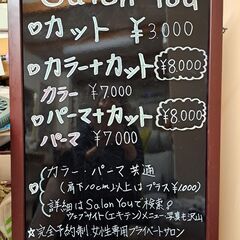 Salon You
カット ¥3000
カラー+カット ¥8000
カラー ¥7000
パーマ+カット ¥8000
パーマ ¥7000
カラー・パーマ共通
(肩下10cm以上はプラス¥1000)
詳細はSalon Youで検索
ウェブサイト(エキテン)メニュー・写真も沢山
★完全予約制 女性専用プライベートサロン